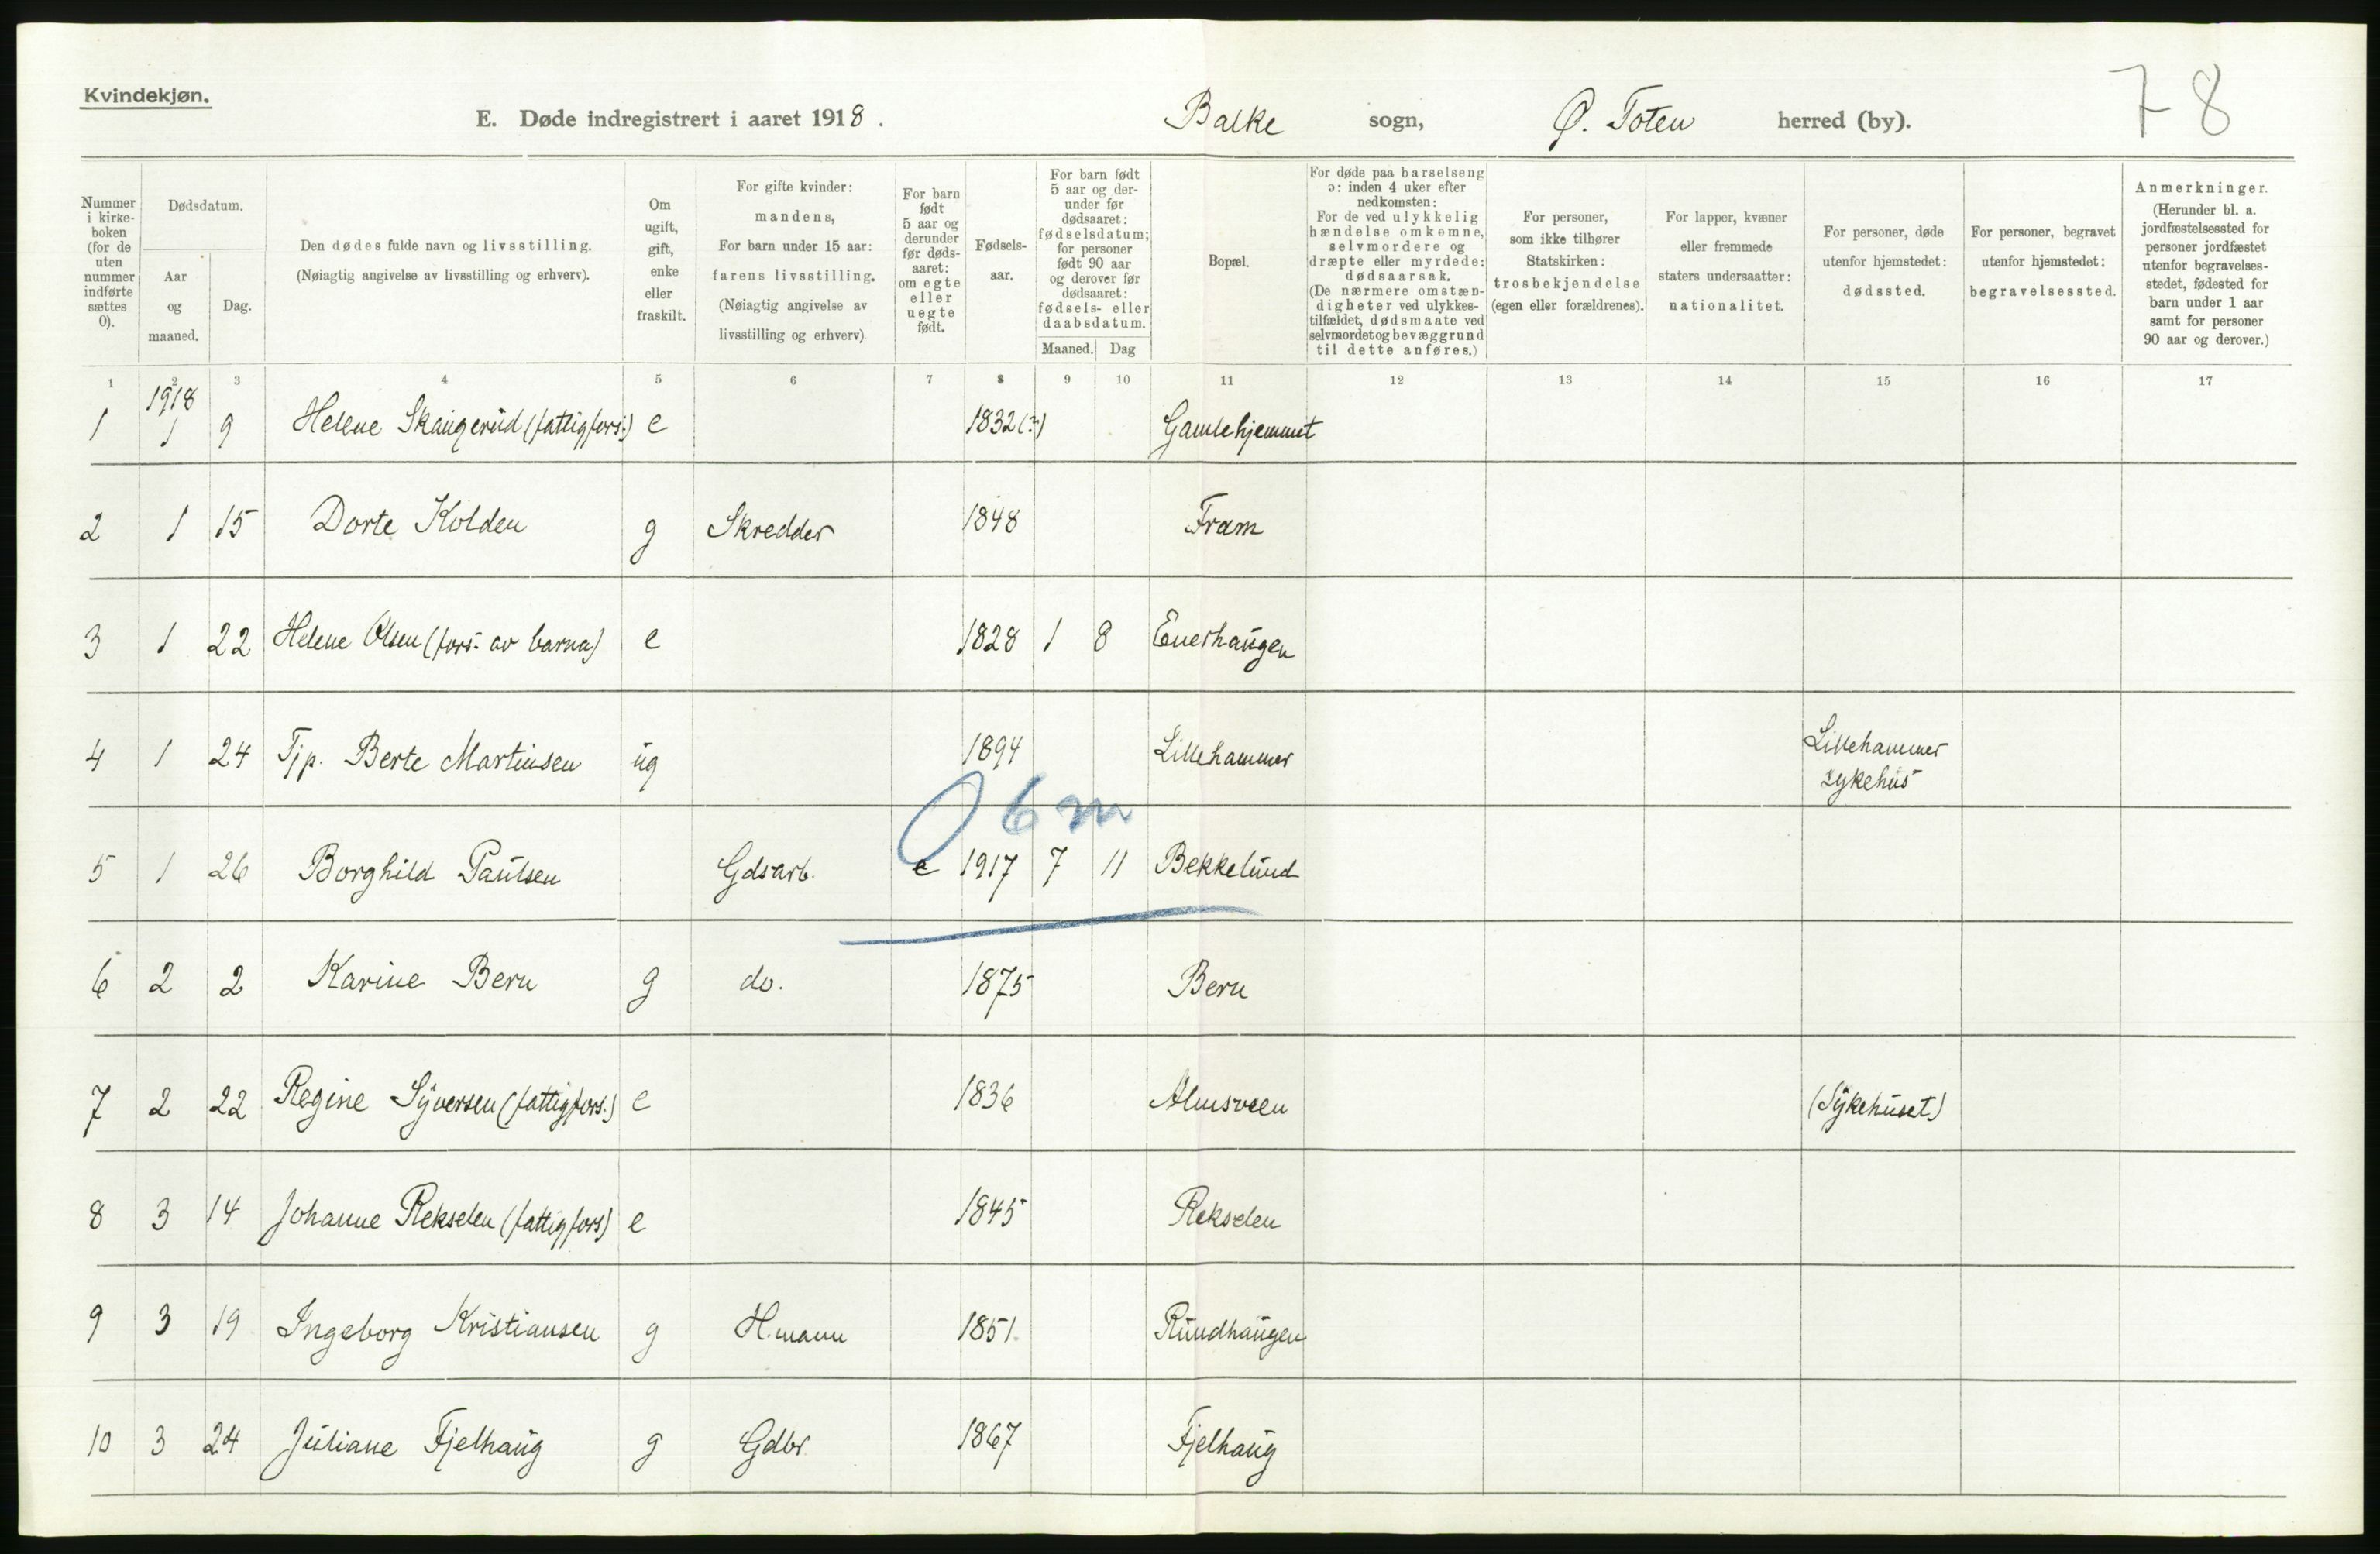 Kvindekjøn.
E. Døde indregistrert i aaret 1918. Balke sogn, Ø. Toten herred (by). 78
Nummer i kirke-boken (for de uten nummer indførte sættes 0).
Dødsdatum.
Aar og maaned.
Dag.
Den dødes fulde navn og livsstilling.
(Nøiagtig angivelse av livsstilling og erhverv).
Om ugift, gift, enke eller fraskilt.
For gifte kvinder: mandens,
For barn under 15 aar: farens livsstilling.
(Nøiagtig angivelse av livsstilling og erhverv)
For barn født 5 aar og derunder før døds-aaret: om egte eller uegte født.
Fødsels-aar.
For barn født 5 aar og der-under før dødsaaret: fødselsdatum; for personer født 90 aar og derover før dødsaaret: fødsels- eller daabsdatum.
Maaned. Dag
Bopæl.
For døde paa barselseng ɔ: inden 4 uker efter nedkomsten:
For de ved ulykkelig hændelse omkomne, selvmordere og dræpte eller myrdede: dødsaarsak.
(De nærmere omstæn-digheter ved ulykkes-tilfældet, dødsmaate ved selvmordet og bevæggrund til dette anføres.)
For personer, som ikke tilhører Statskirken: trosbekjendelse (egen eller forældrenes).
For lapper, kvæner eller fremmede staters undersaatter: nationalitet.
For personer, døde utenfor hjemstedet: dødssted.
For personer, begravet utenfor hjemstedet: begravelsessted.
Anmerkninger.
(Herunder bl. a. jordfæstelsessted for personer jordfæstet utenfor begravelses-stedet, fødested for barn under 1 aar samt for personer 90 aar og derover.)
1 2 3 4 5 6 7 8 9 10 11 12 13 14 15 16 17
1918
1 1 9 Helene Skaugerud (fattigfors:) e 1832(?) Gamlehjemmet
2 1 15 Dorte Kolden g Skredder 1848 Fram
3 1 22 Helene Olsen (fors. av barna) e 1828 1 8 Enerhaugen
4 1 24 Tjp. Berte Martinsen ug 1894 Lillehammer Lillehammer sykehus
0 6 m
5 1 26 Borghild Paulsen Gdsarb. e 1917 7 11 Bekkelund
6 2 2 Karine Bern g do. 1875 Bern
7 2 22 Regine Syversen (fattigfors.) e 1836 Almsveen (Sykehuset)
8 3 14 Johanne Rekselen (fattigfors) e 1845 Rekselen
9 3 19 Ingeborg Kristiansen g H.mann 1851 Rundhaugen
10 3 24 Juliane Fjelhaug g Gdbr. 1867 Fjelhaug